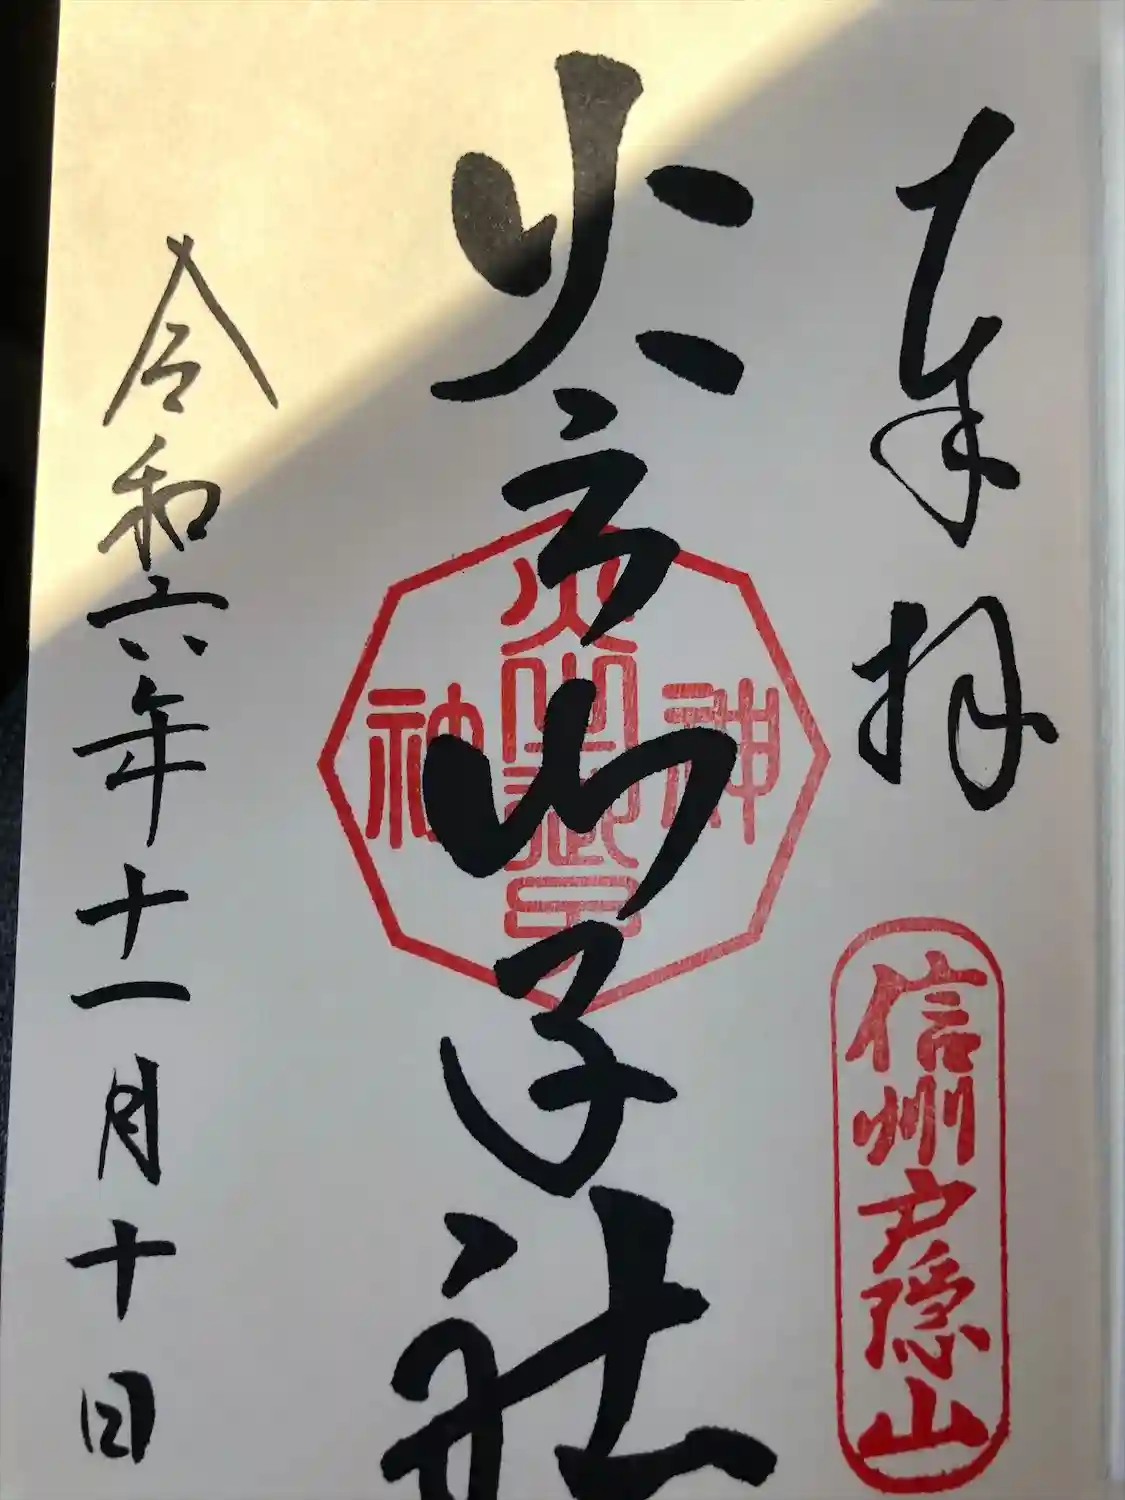 奉拝
信州戸隠山
火之御子社
火之御子
神社
令和六年十一月十日